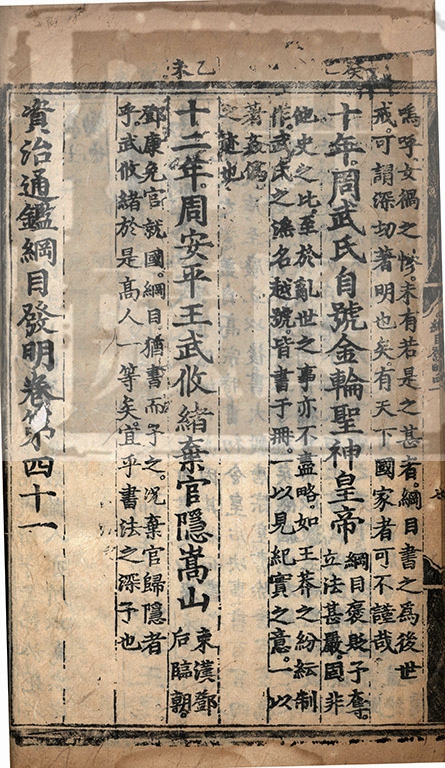 癸
嗚呼女禍之慘未有若是之甚者綱目書之爲後世
戒可謂深切著明也矣有天下國家者可不謹哉
十年。周武氏自號金輪聖神皇帝
綱目褒貶予奪。
立法甚嚴固非
他史之比。至於亂世之事亦不盡略。如王莽之紛紜制
作。武氏之滛名越號。皆書于冊。一以見紀實之意。一以
著姦僞
之迹也
乙未
十二年。周安平王武攸緒棄官隱嵩山
東漢鄧
后臨朝。
鄧康免官就國。綱目猶書而予之。況棄官歸隱者
乎武攸緒於是髙人一等矣宜乎書法之深予也
資治通鑑綱目發明卷第四十一